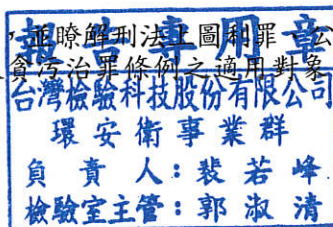 ，並瞭解刑法上圖利罪、公
貪污治罪條例之適用對象
報告專用章
台灣檢驗科技股份有限公司
環安衛事業群
負責人：裴若峰
檢驗室主管：郭淑清